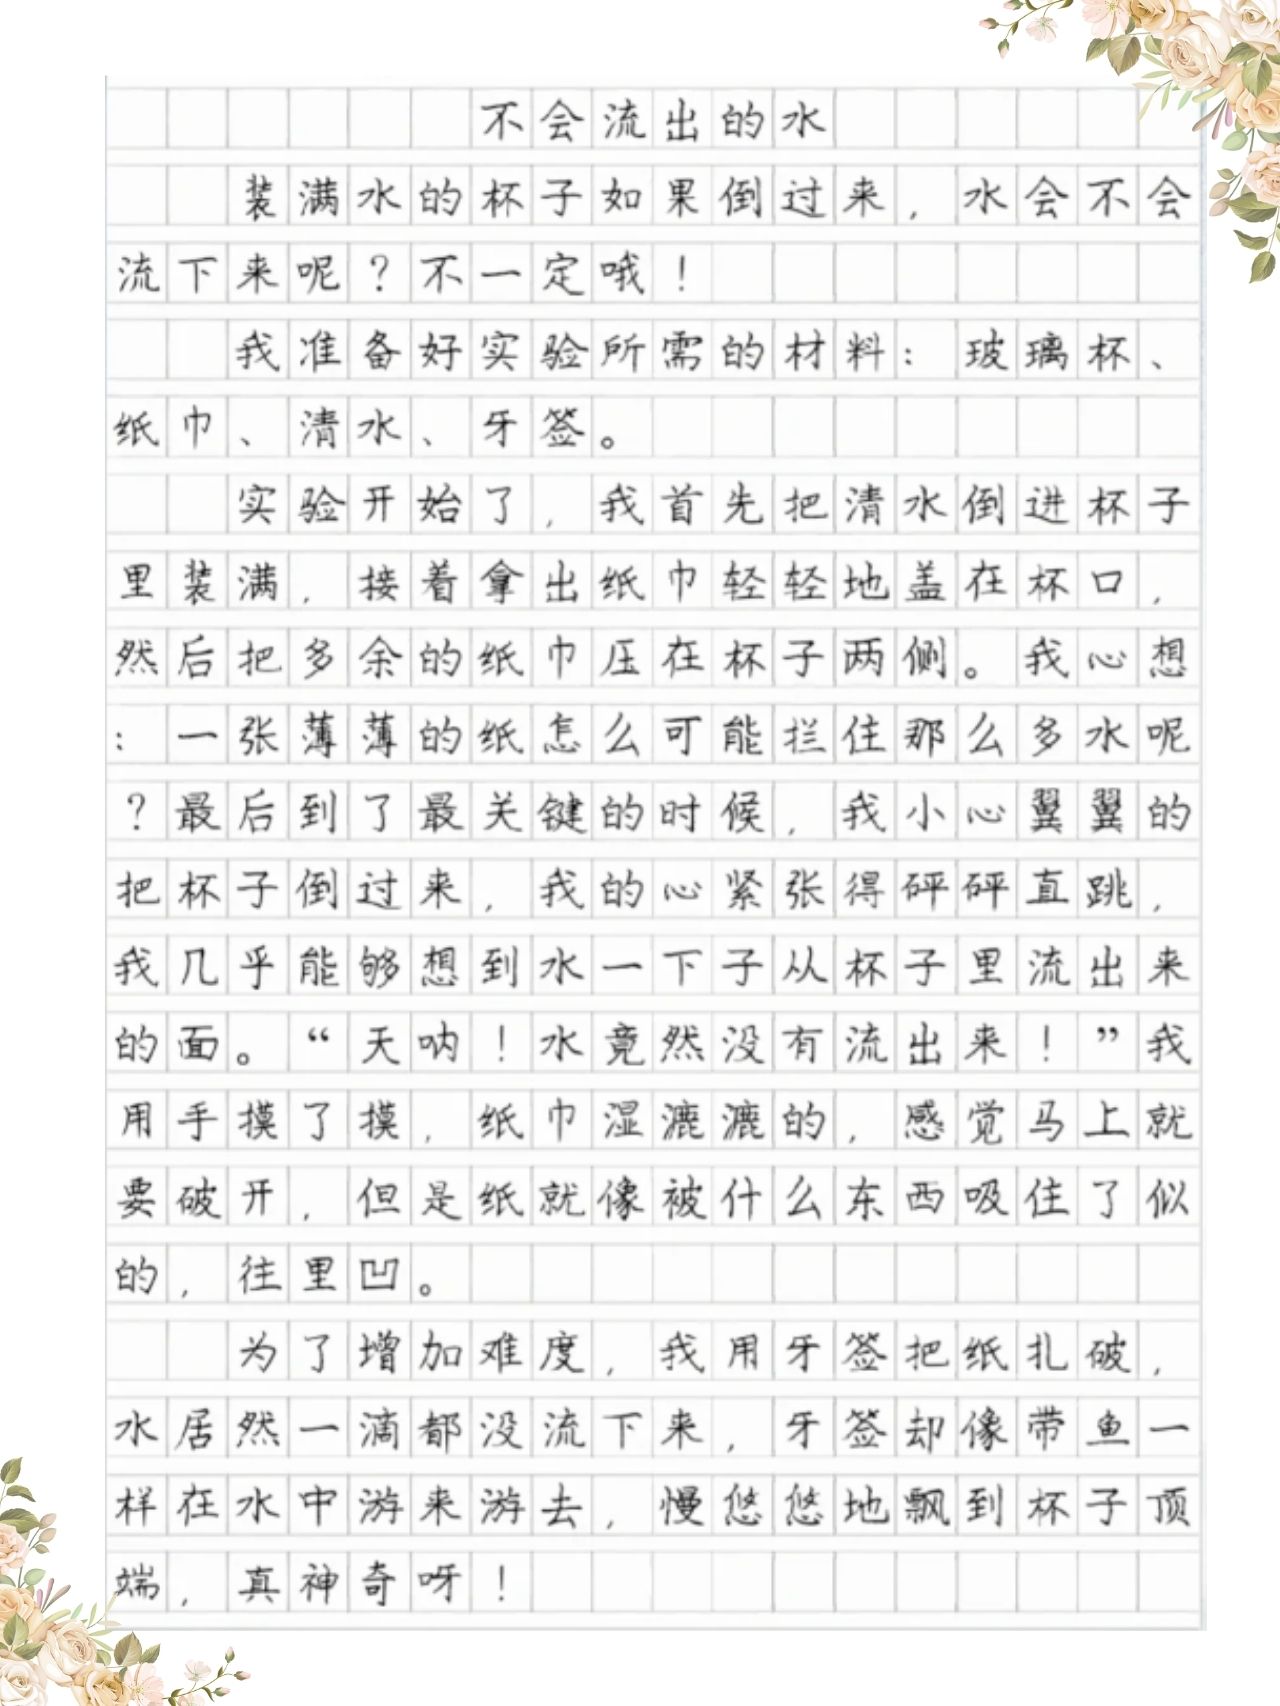 不会流出的水
装满水的杯子如果倒过来，水会不会
流下来呢？不一定哦！
我准备好实验所需的材料：玻璃杯、
纸巾、清水、牙签。
实验开始了，我首先把清水倒进杯子
里装满，接着拿出纸巾轻轻地盖在杯口，
然后把多余的纸巾压在杯子两侧。我心想
：一张薄薄的纸怎么可能拦住那么多水呢
？最后到了最关键的时候，我小心翼翼的
把杯子倒过来，我的心紧张得砰砰直跳，
我几乎能够想到水一下子从杯子里流出来
的面。“天呐！水竟然没有流出来！”我
用手摸了摸，纸巾湿漉漉的，感觉马上就
要破开，但是纸就像被什么东西吸住了似
的，往里凹。
为了增加难度，我用牙签把纸扎破，
水居然一滴都没流下来，牙签却像带鱼一
样在水中游来游去，慢悠悠地飘到杯子顶
端，真神奇呀！